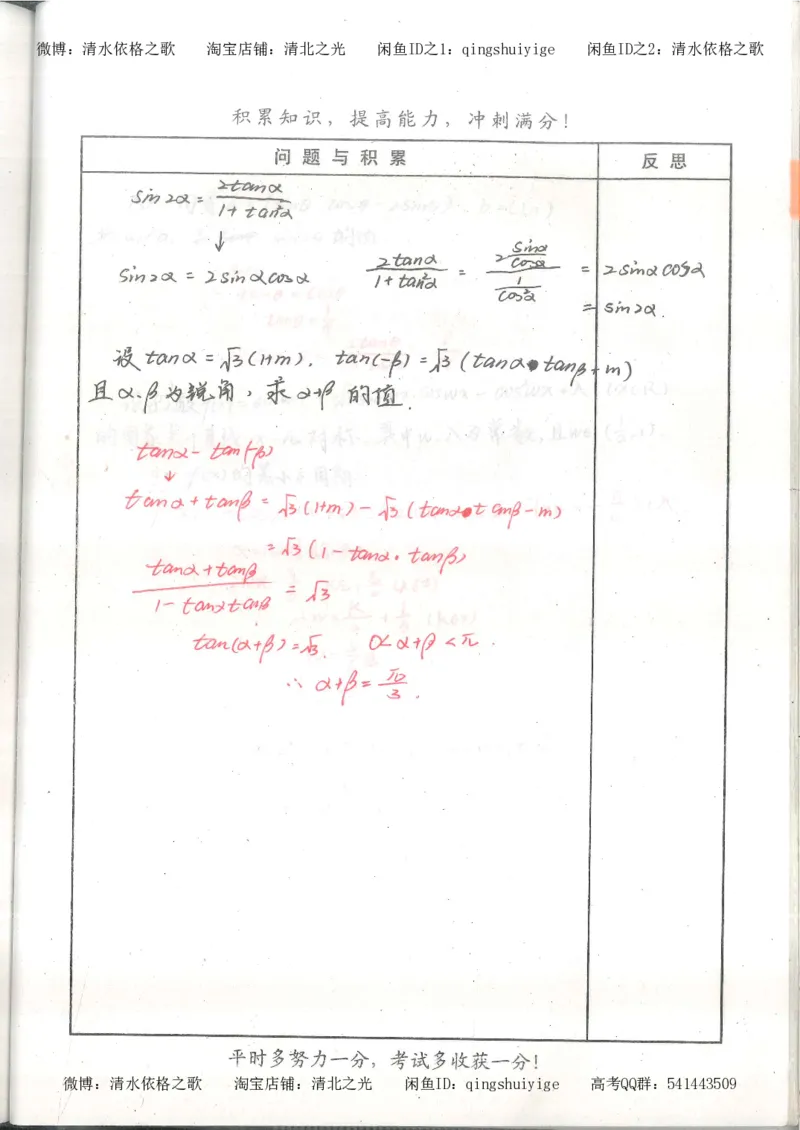 微博：清水依格之歌 淘宝店铺：清北之光 闲鱼ID之1：qingshuiyige 闲鱼ID之2：清水依格之歌
积累知识，提高能力，冲刺满分！
问题与积累 反思
sin2α = 2tanα / (1+tan²α)
↓
sin2α = 2sinαcosα 2tanα / (1+tan²α) = (2 sinα/cosα) / (1/cos²α) = 2sinαcosα
= sin2α.
设tanα=√3(1+m). tan(-β)=√3(tanα·tanβ+m)
且α.β为锐角，求α+β的值.
tanα - tan(-β)
↓
tanα+tanβ = √3(1+m) - √3(tanα·tanβ-m)
=√3(1-tanα·tanβ)
(tanα+tanβ) / (1-tanαtanβ) = √3
tan(α+β)=√3. 0<α+β<π.
∴ α+β=π/3.
平时多努力一分，考试多收获一分！
微博：清水依格之歌 淘宝店铺：清北之光 闲鱼ID：qingshuiyige 高考QQ群：541443509